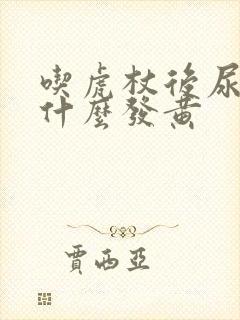 喫虎杖後尿
什麼發黄
賈西亞